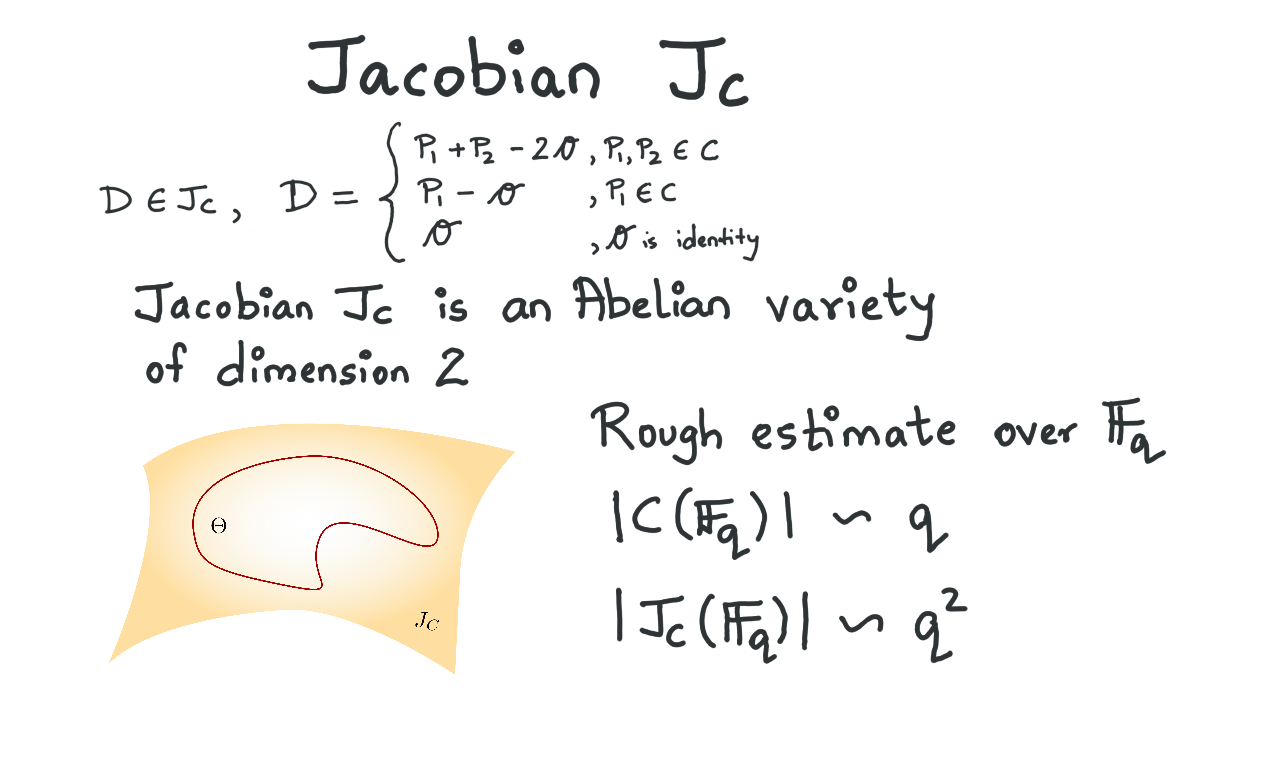 Jacobian J_C
D ∈ J_C, D = { P₁ + P₂ - 2𝒪, P₁, P₂ ∈ C
P₁ - 𝒪 , P₁ ∈ C
𝒪 , 𝒪 is identity
Jacobian J_C is an Abelian variety
of dimension 2
Rough estimate over 𝔽_q
|C(𝔽_q)| ∽ q
|J_C(𝔽_q)| ∽ q²
Θ
J_C